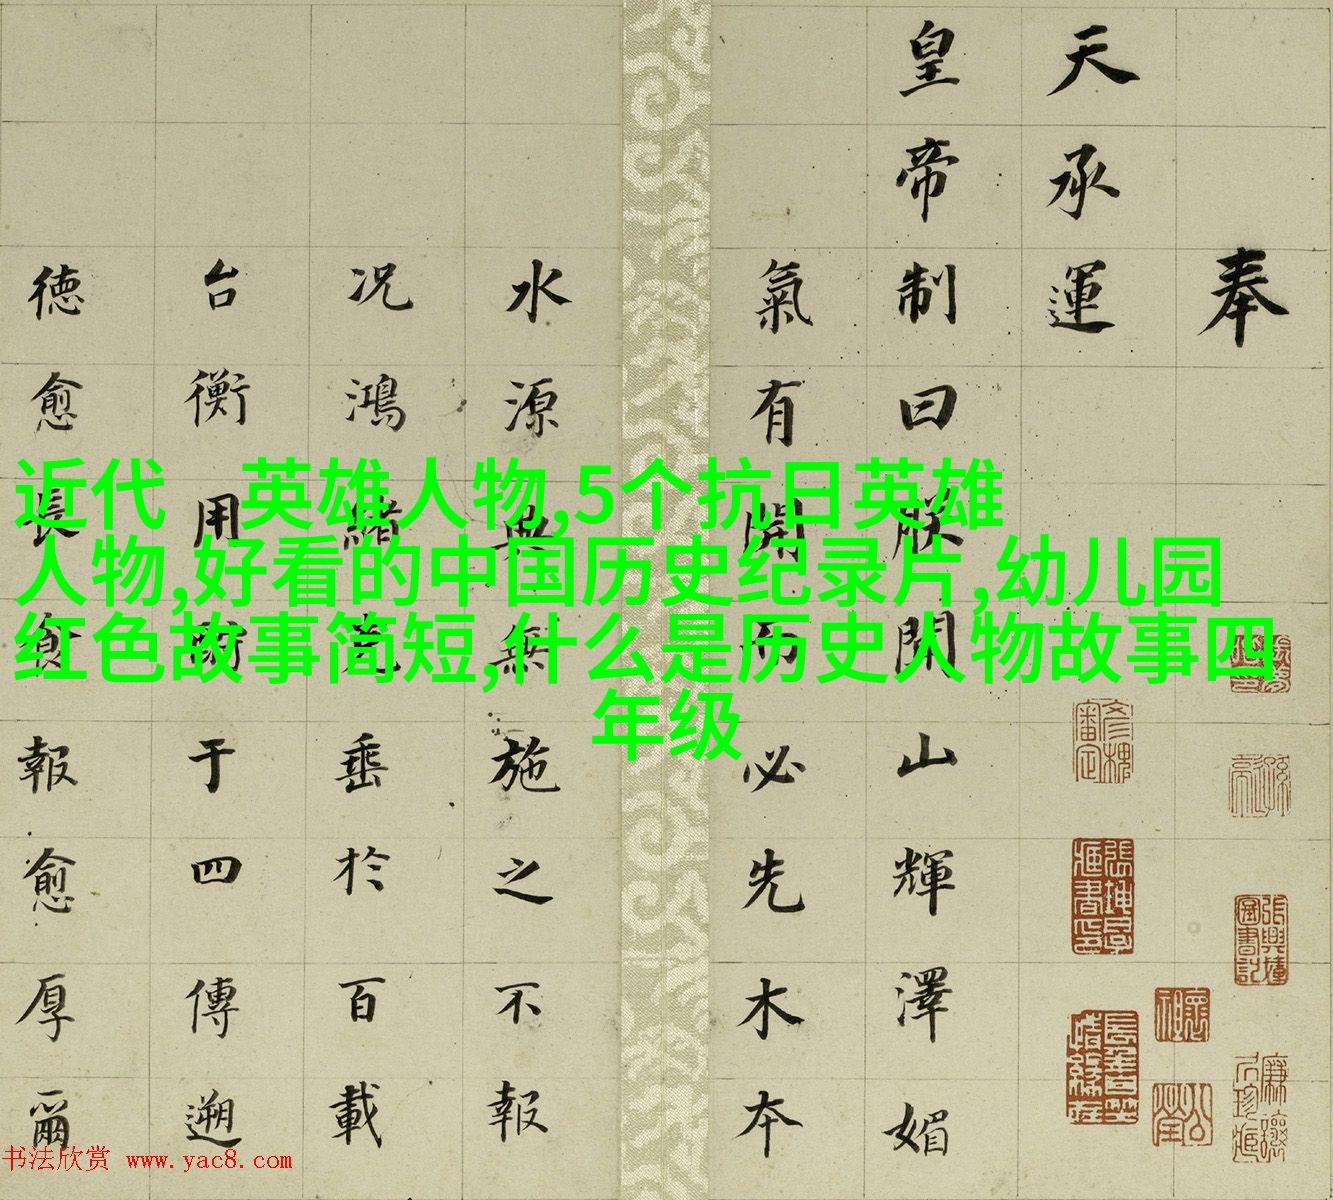 奉
天承運
皇帝制曰朕聞山輝澤媚
氣有開而必先木本
水源與無施之不報
况鴻緒 垂於百載
台衡用 于四傳遡
德愈長食報愈厚爾
近代 英雄人物,5个抗日英雄
人物,好看的中国历史纪录片,幼儿园
红色故事简短,什么是历史人物故事四
年级
书法欣赏 www.yac8.com